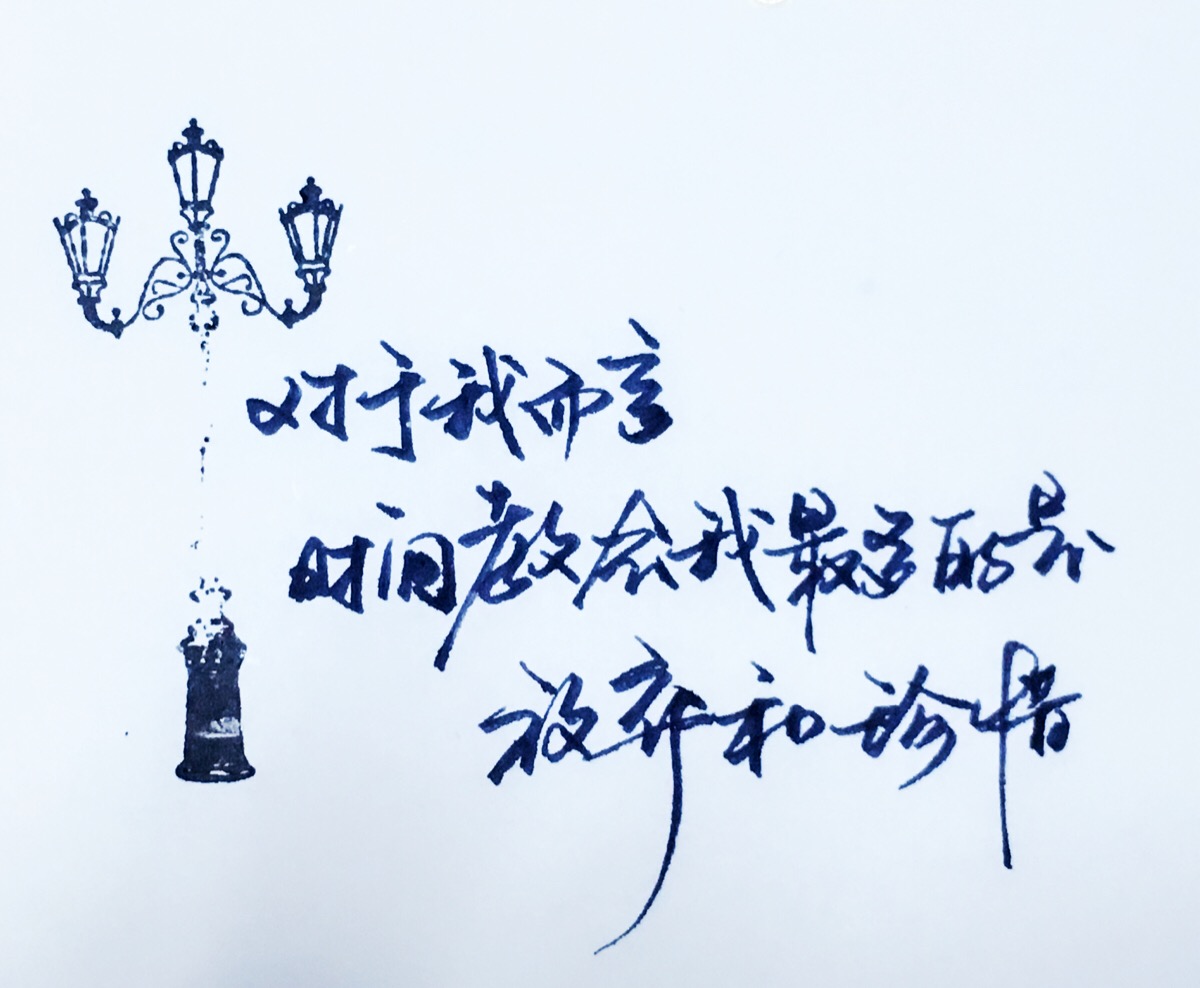 对于我而言
时间教会我最多的是
放弃和珍惜